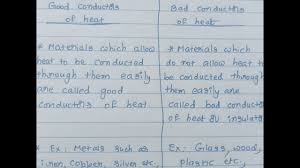 Good conductors
of heat
Bad conductors
of heat
* Materials which allow
heat to be conducted
through them easily
are called good
conductors of heat
* Materials which
do not allow heat to
be conducted through
them easily are
called bad conductors
of heat or insulators
* Ex: Metals such as
iron, copper, silver etc.,
Ex: Glass, wood,
plastic etc.,